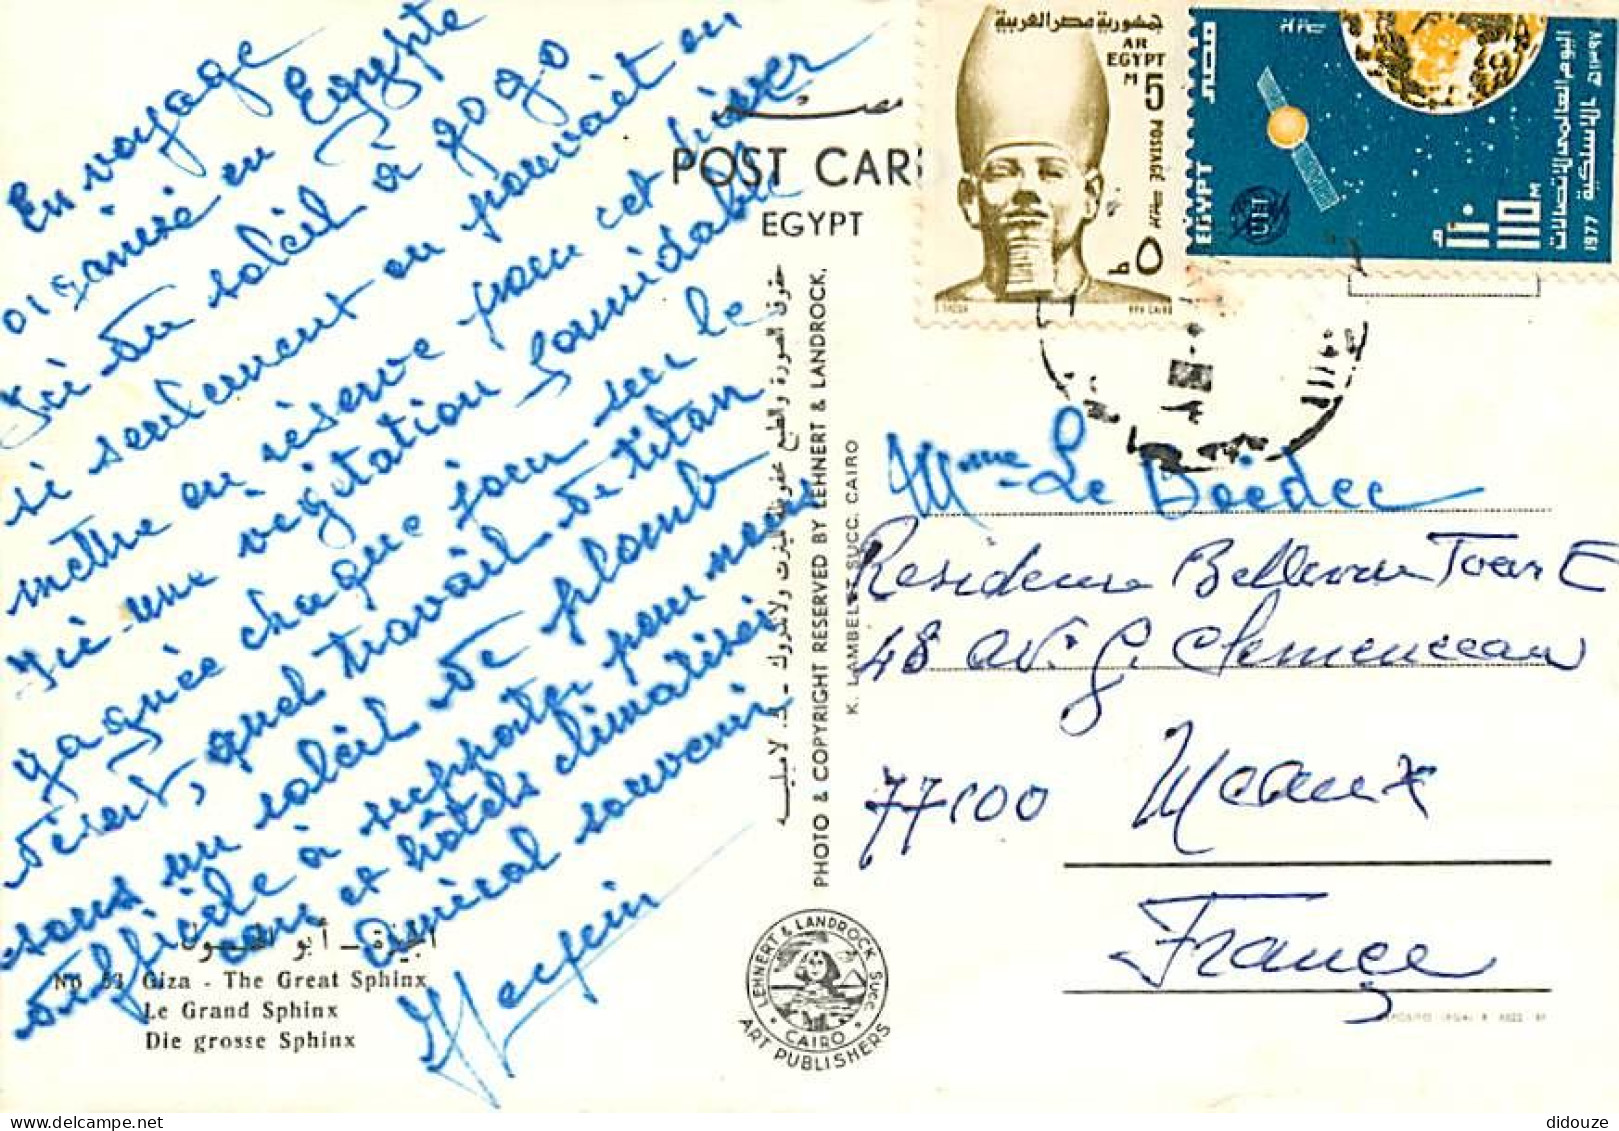 En voyage
organisé en Egypte
Ici du soleil à gogo
si seulement on pouvait en
mettre en réserve pour cet hiver
Ici une végétation formidable
gagnée chaque jour sur le
désert, quel travail de titan
sous un soleil de plomb
difficile à supporter pour nous
cars et hôtels climatisés
Amical souvenir
الجيزة - أبو الهول
No 63 Giza - The Great Sphinx
Le Grand Sphinx
Die grosse Sphinx
مصر
POST CAR
EGYPT
حقوق الصورة والطبع محفوظة لينرت ولاندروك - ك. لامبليه
PHOTO & COPYRIGHT RESERVED BY LEHNERT & LANDROCK.
K. LAMBELET SUCC. CAIRO
LEHNERT & LANDROCK SUCC.
CAIRO
ART PUBLISHERS
جمهورية مصر العربية
AR
EGYPT
M 5
POSTAGE
٥ م
مصر
EGYPT
UIT
١١٠ م
115 M
اليوم العالمى للاتصالات
السلكية
1977 ١٣٩٧هـ
Mme Le Boëdec
Residence Bellevue Tour E
48 av. G. Clemenceau
77100 Meaux
France
didouze